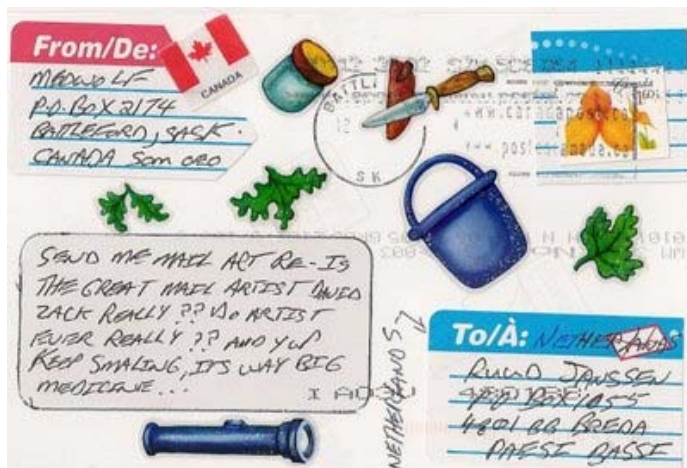 From/De:
CANADA
MADWOLF
P.O. BOX 2174
BATTLEFORD, SASK.
CANADA S0M 0E0
BATTL
S K
SEND ME MAIL ART RE-IS
THE GREAT MAIL ARTIST DAVID
ZACK REALLY?? DO ARTIST
EVER REALLY?? AND YUP
KEEP SMALING, ITS WAY BIG
MEDICINE...
NETHERLANDS
To/À: NETHERLANDS
RUUD JANSSEN
P.O. BOX 1055
4801 BB BREDA
PAESI BASSI